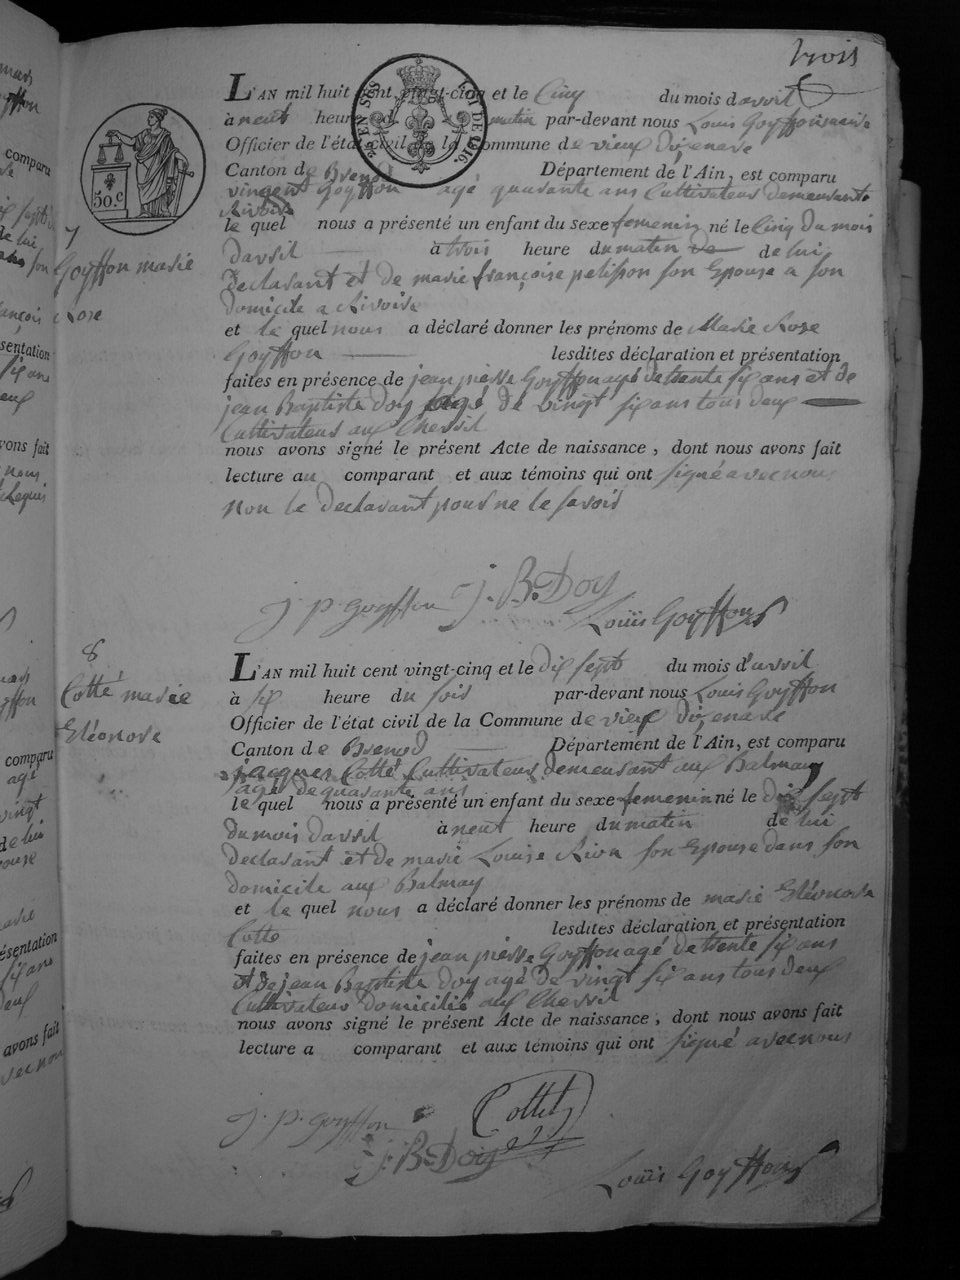 trois
L'AN mil huit cent vingt-cinq et le Cinq du mois davril
à neuf heure du matin par-devant nous Louis Goyffon maire
Officier de l'état civil de la Commune de vieux d'izenave
Canton de Brenod Département de l'Ain, est comparu
vingent Goyffon agé quarante ans Cultivateur demeurant a
Rivoire
le quel nous a présenté un enfant du sexe femenin né le cinq du mois
davril à trois heure du matin de lui
declarant et de marie françoise petisson son Epouse a son
domicile a Rivoire
et le quel nous a déclaré donner les prénoms de Marie Rose
Goyffon lesdites déclaration et présentation
faites en présence de jean pierre Goyffon agé de trente six ans et de
jean Baptiste Doy agé de vingt six ans tous deux
Cultivateur aux Chevril
nous avons signé le présent Acte de naissance, dont nous avons fait
lecture au comparant et aux témoins qui ont signé avec nous
non le declarant pour ne le savoir
7
Goyffon marie
Rose
50.c
LOI DE 1816
J. p. Goyffon J. B. Doy
Louis Goyffon
8
Cotté marie
Eléonore
L'AN mil huit cent vingt-cinq et le dix sept du mois d'avril
à six heure du soir par-devant nous Louis Goyffon
Officier de l'état civil de la Commune de vieux dizenave
Canton de Brenod Département de l'Ain, est comparu
jacques Cotté Cultivateur demeurant aux Balmay
agé de quarante ans
le quel nous a présenté un enfant du sexe femenin né le dix sept
du mois davril à neuf heure du matin de lui
declarant et de marie Louise Rion son Epouse dans son
domicile aux Balmay
et le quel nous a déclaré donner les prénoms de marie Eléonore
Cotte lesdites déclaration et présentation
faites en présence de jean pierre Goyffon agé de trente six ans
et de jean Baptiste Doy agé de vingt six ans tous deux
Cultivateur domicilié aux Chevril
nous avons signé le présent Acte de naissance, dont nous avons fait
lecture a comparant et aux témoins qui ont signé avec nous
J. p. Goyffon Cottet
J. B. Doy
Louis Goyffon